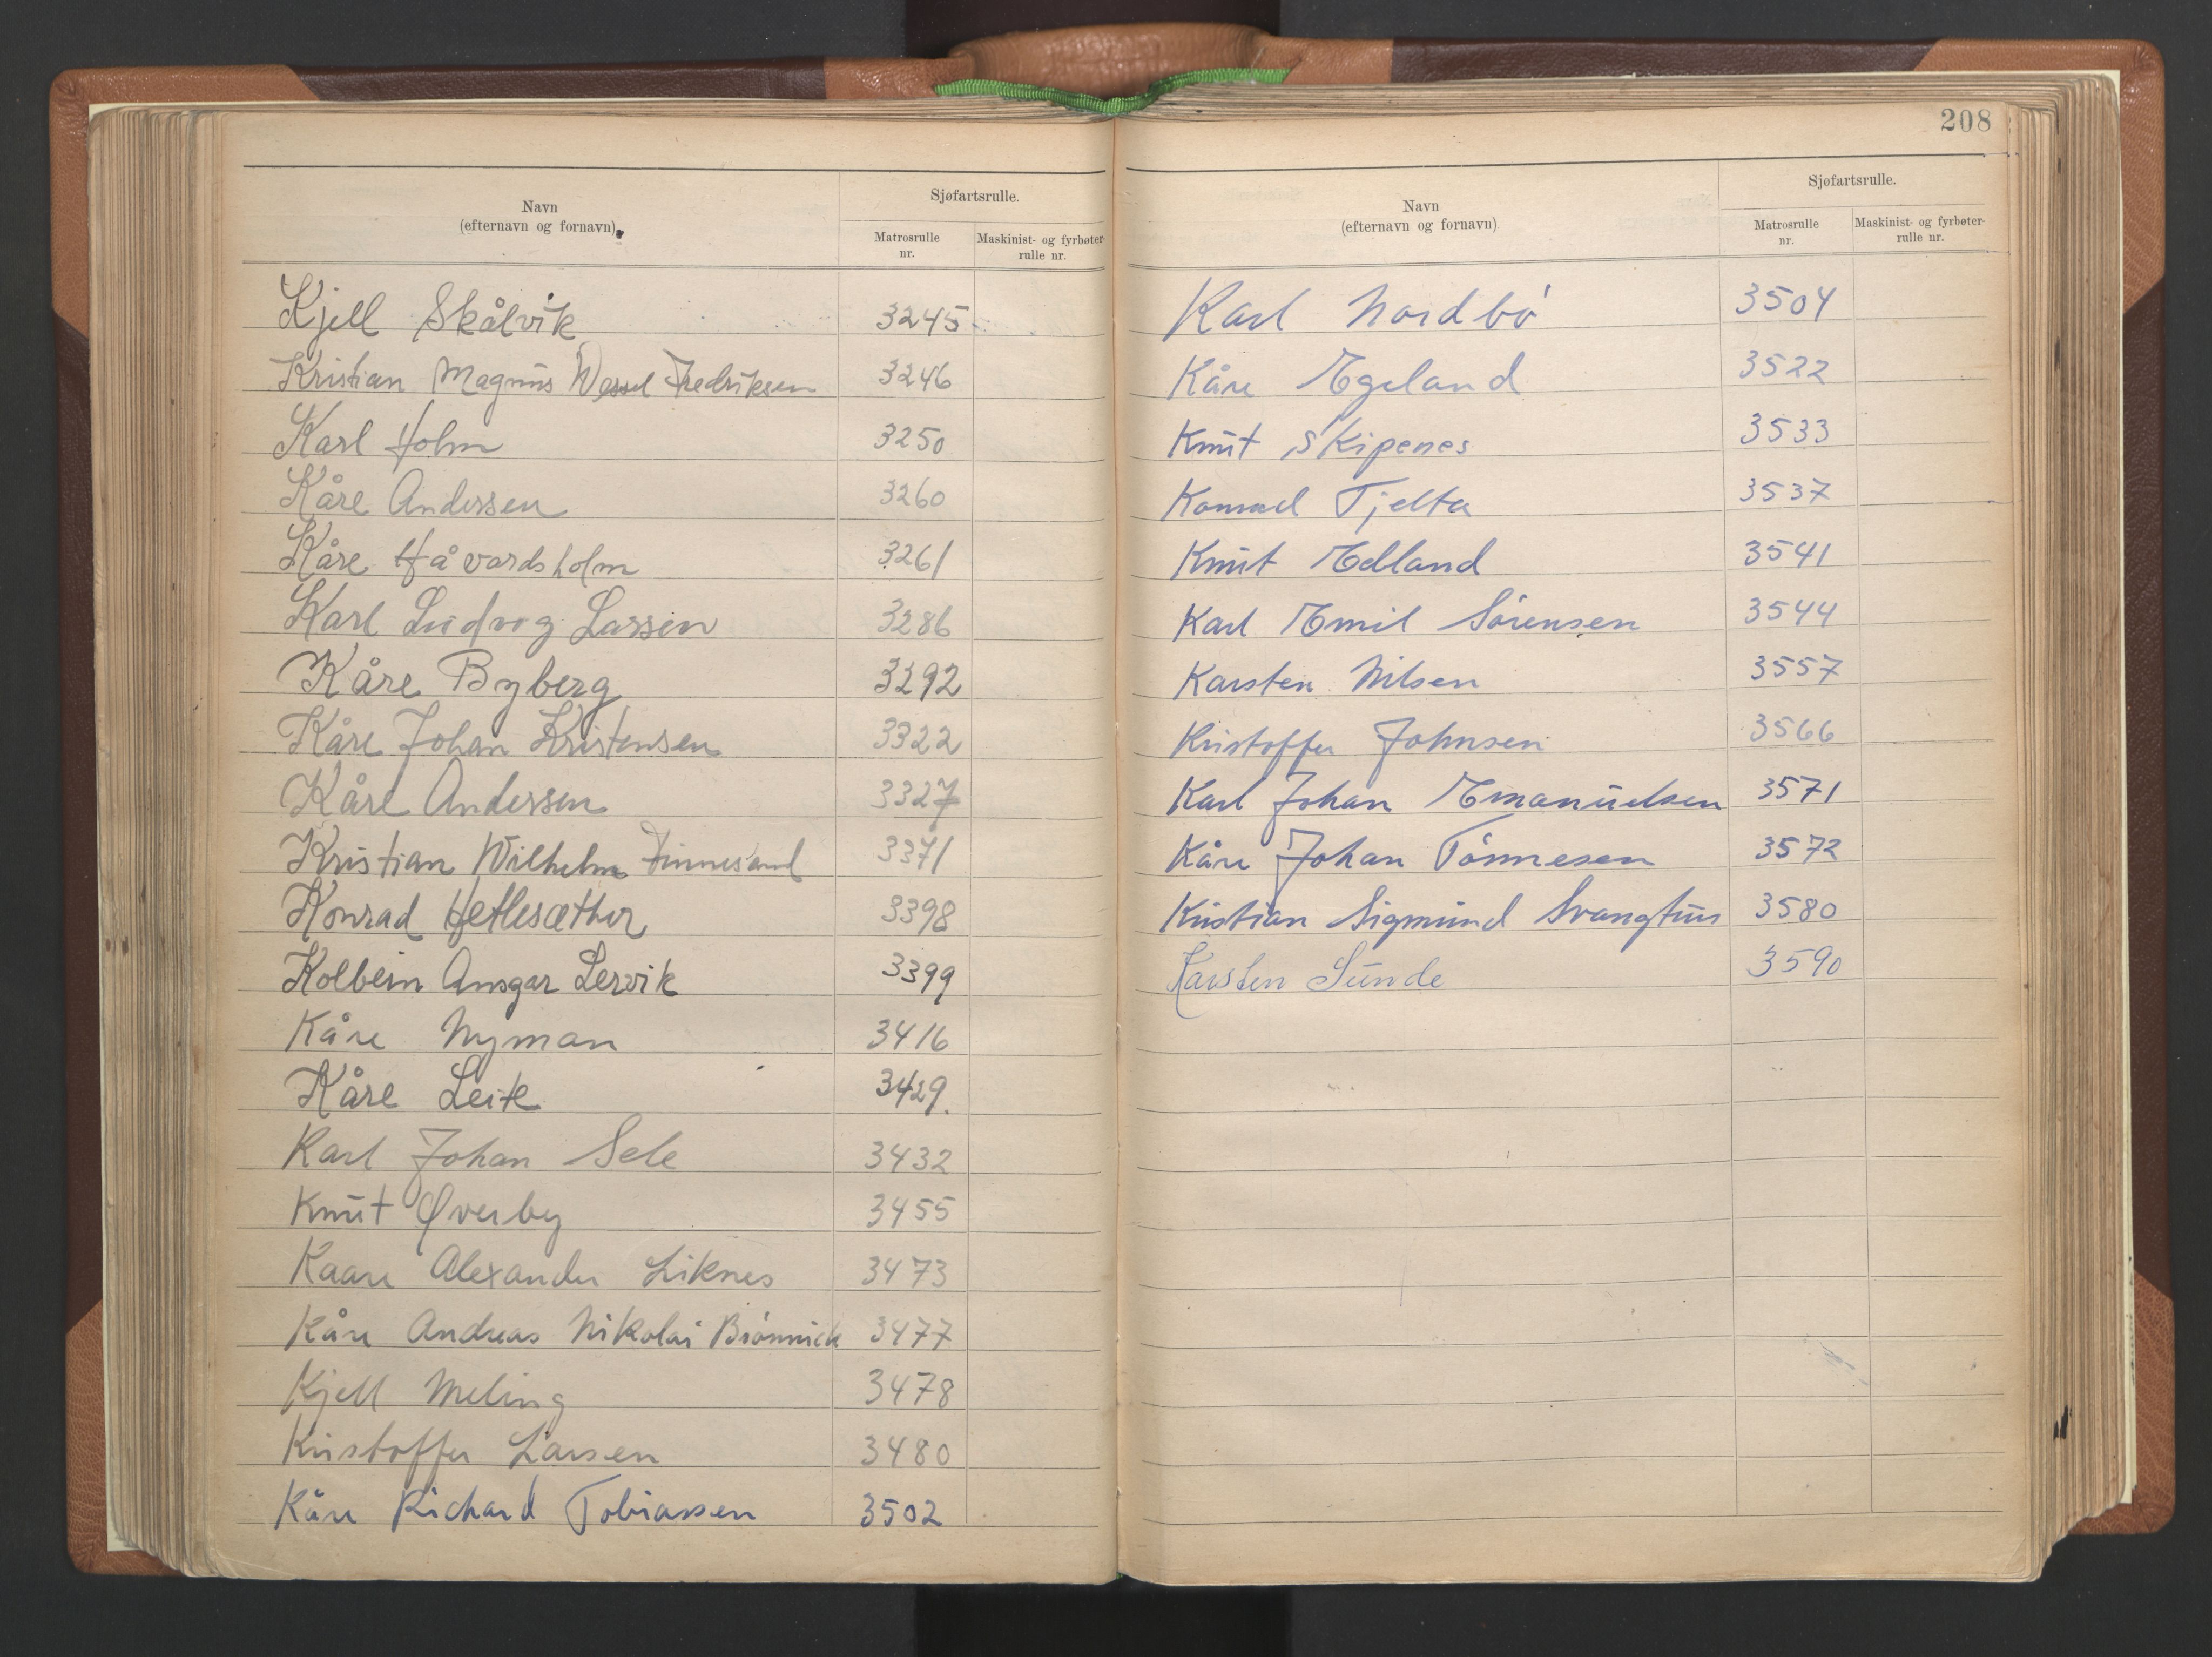 Navn
(efternavn og fornavn).
Sjøfartsrulle.
Matrosrulle nr.
Maskinist- og fyrbøter-rulle nr.
Kjell Skålvik 3245
Kristian Magnus Wessel Fredriksen 3246
Karl Holm 3250
Kåre Andersen 3260
Kåre Håvardsholm 3261
Karl Ludvig Larsen 3286
Kåre Byberg 3292
Kåre Johan Kristensen 3322
Kåre Andersen 3327
Kristian Wilhelm Finnesand 3371
Konrad Hetlesæther 3398
Kolbein Ansgar Lervik 3399
Kåre Nyman 3416
Kåre Leite 3429.
Karl Johan Sele 3432
Knut Øverby 3455
Kaare Alexander Liknes 3473
Kåre Andreas Nikolai 3477
Kjell Meling 3478
Kristoffer Larsen 3480
Kåre Richard Tobiassen 3502
208
Navn
(efternavn og fornavn).
Sjøfartsrulle.
Matrosrulle nr.
Maskinist- og fyrbøter-rulle nr.
Karl Nordbö 3504
Kåre Egeland 3522
Knut Skipenes 3533
Konrad Tjelta 3537
Knut Edland 3541
Karl Emil Sörensen 3544
Karsten Nilsen 3557
Kristoffer Johnsen 3566
Karl Johan Emanuelsen 3571
Kåre Johan Tönnesen 3572
Kristian Sigmund Svangtun 3580
Karsten Sunde 3590